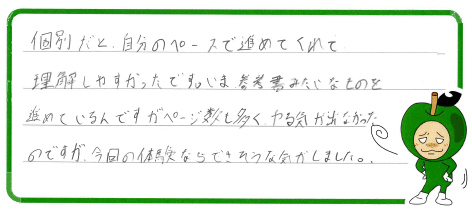 個別だと、自分のペースで進めてくれて
理解しやすかったです。いま、参考書みたいなものを
進めているんですがページ数も多く、やる気が出なかった
のですが、今回の体験ならできそうな気がしました。